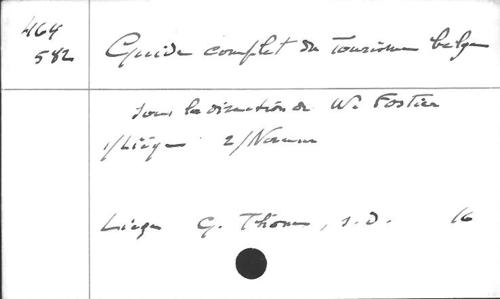 464
582
Guide complet du Tourisme belge
sous la direction de W. Fostier
1/Liège 2/Namur
Liège G. Thone, s.d. 16